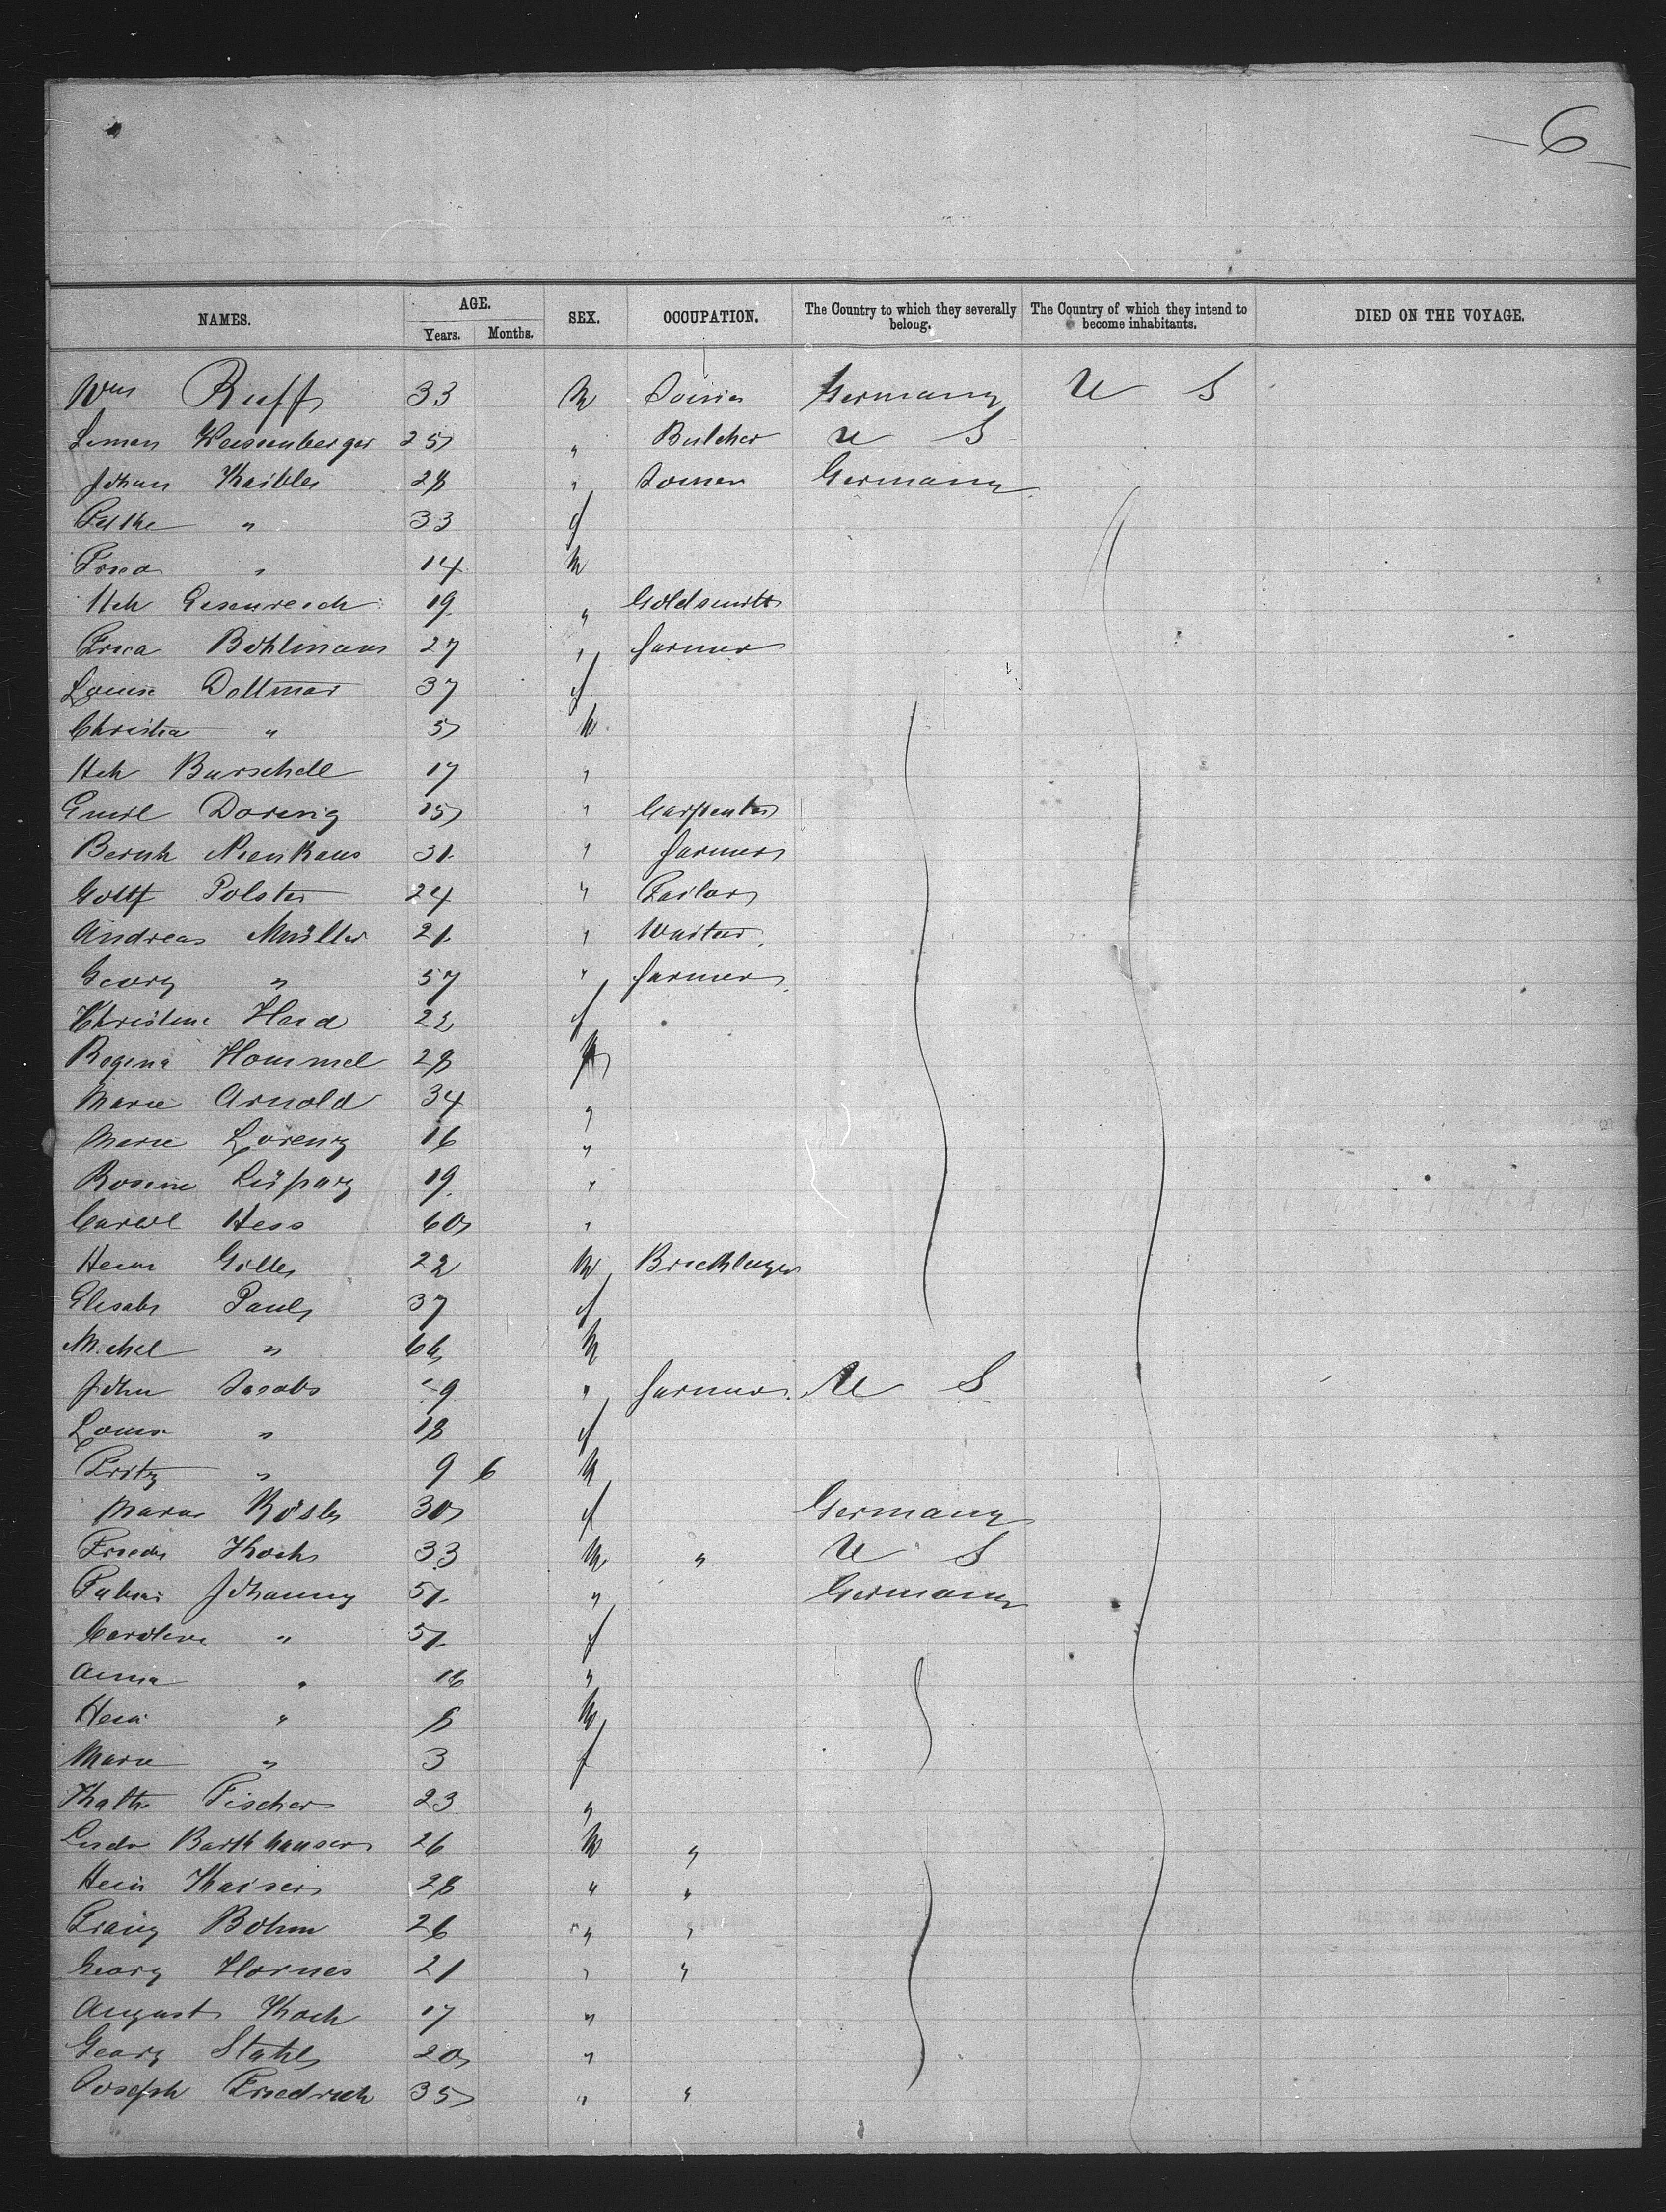 -6-
NAMES. AGE. Years. Months. SEX. OCCUPATION. The Country to which they severally belong. The Country of which they intend to become inhabitants. DIED ON THE VOYAGE.
Wm Ruff 33 M Joiner Germany U S
Simon Weissenberger 25 " Butcher U S
Johan Kaibler 28 " Joiner Germany
33 f
Fried " 14 M
Hch Eisenreich 19 " Goldsmith
Bohlmann 27 " farmer
Louise Dettmar 37 f
Christian " 5 M
Hch Burschell 17 "
Emil Doring 15 " Carpenter
Bernh Nienhaus 31 " farmer
Gottf Polster 24 " Tailor
Andreas Müller 21 " Waiter
Georg " 57 " farmer
Christine Herd 22 f
Regina Hommel 28 f
Marie Arnold 34 "
Marie Lorenz 16 "
Rosine 19 "
Hess 60 "
Heinr Giller 22 M Bricklayer
Elisab Pauly 37 f
Michel " M
John Jacobs " farmer U S
Louise " 18 f
Fritz " 9 6 M
Maria Rösler 30 f Germany
Friedr Koch 33 M " U S
Johanny 51 " Germany
Caroline " 51 f
Anna " 16 "
Hein " 8 M
Marie " 3 f
Kath Fischer 23 "
Barthhauser 26 M "
Hein Kaiser 28 " "
Franz Bohm 26 " "
Georg Hornes 21 " "
August Koch 17 "
Georg Stahl 20 "
Joseph Friedrich 35 " "